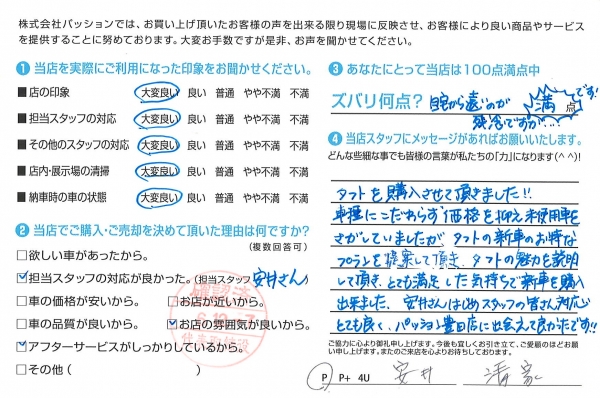 株式会社パッションでは、お買い上げ頂いたお客様の声を出来る限り現場に反映させ、お客様により良い商品やサービス
を提供することに努めております。大変お手数ですが是非、お声を聞かせてください。
❶当店を実際にご利用になった印象をお聞かせください。
■店の印象 大変良い 良い 普通 やや不満 不満
■担当スタッフの対応 大変良い 良い 普通 やや不満 不満
■その他のスタッフの対応 大変良い 良い 普通 やや不満 不満
■店内・展示場の清掃 大変良い 良い 普通 やや不満 不満
■納車時の車の状態 大変良い 良い 普通 やや不満 不満
❷当店でご購入・ご売却を決めて頂いた理由は何ですか?
(複数回答可)
□欲しい車があったから。
☑担当スタッフの対応が良かった。(担当スタッフ 安井さん)
□車の価格が安いから。 □お店が近いから。
□車の品質が良いから。 ☑お店の雰囲気が良いから。
☑アフターサービスがしっかりしているから。
□その他( )
確認済
❸あなたにとって当店は100点満点中
ズバリ何点? 自宅から遠いのが 残念ですが… 満点 です!
❹当店スタッフにメッセージがあればお願いいたします。
どんな些細な事でも皆様の言葉が私たちの「力」になります(^^)!
タフトを購入させて頂きました!!
車種にこだわらず価格を抑え未使用車を
さがしていましたが、タフトの新車のお得な
プランを提案して頂き、タフトの魅力を説明
して頂き、とても満足した気持ちで新車を購入
出来ました。安井さんはじめスタッフの皆さん対応が
とても良く、パッション豊田店に出会えて良かったです!!
ご協力に心より御礼申し上げます。今後も宜しくお引き立て、ご愛顧のほどお願い申し上げます。またのご来店を心よりお待ちしております。
P P+ 4U 安井 清家